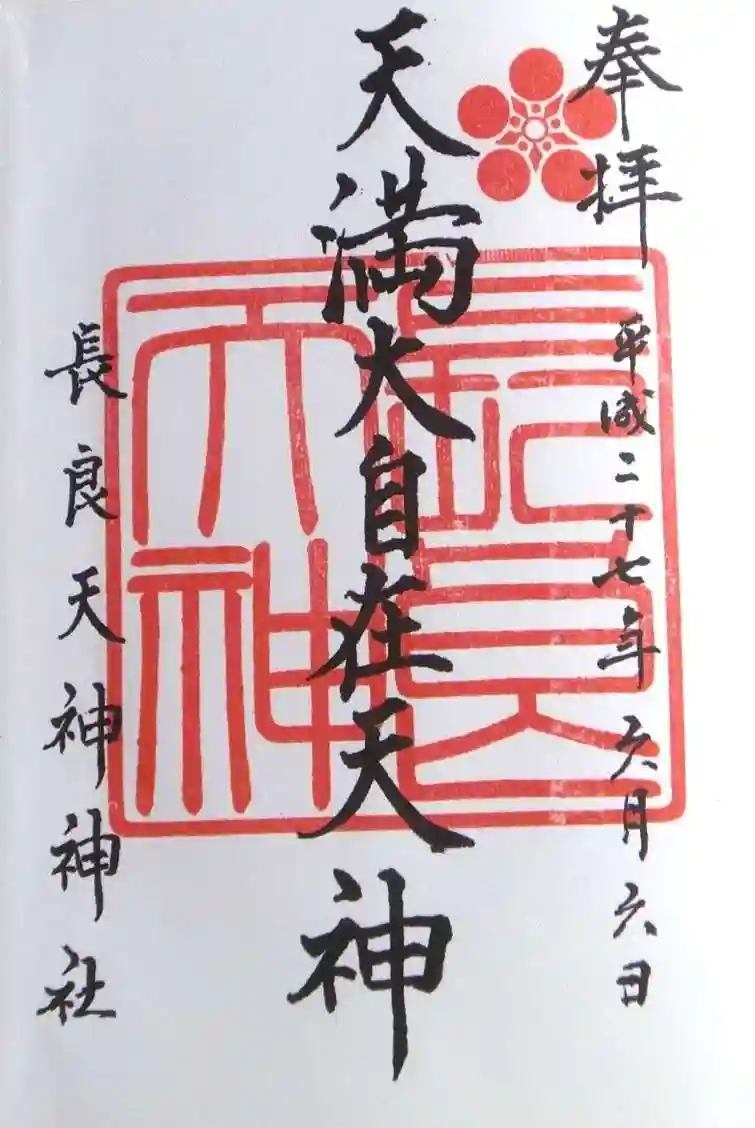 奉拝
平成二十七年六月六日
天満大自在天神
長良天神
長良天神神社